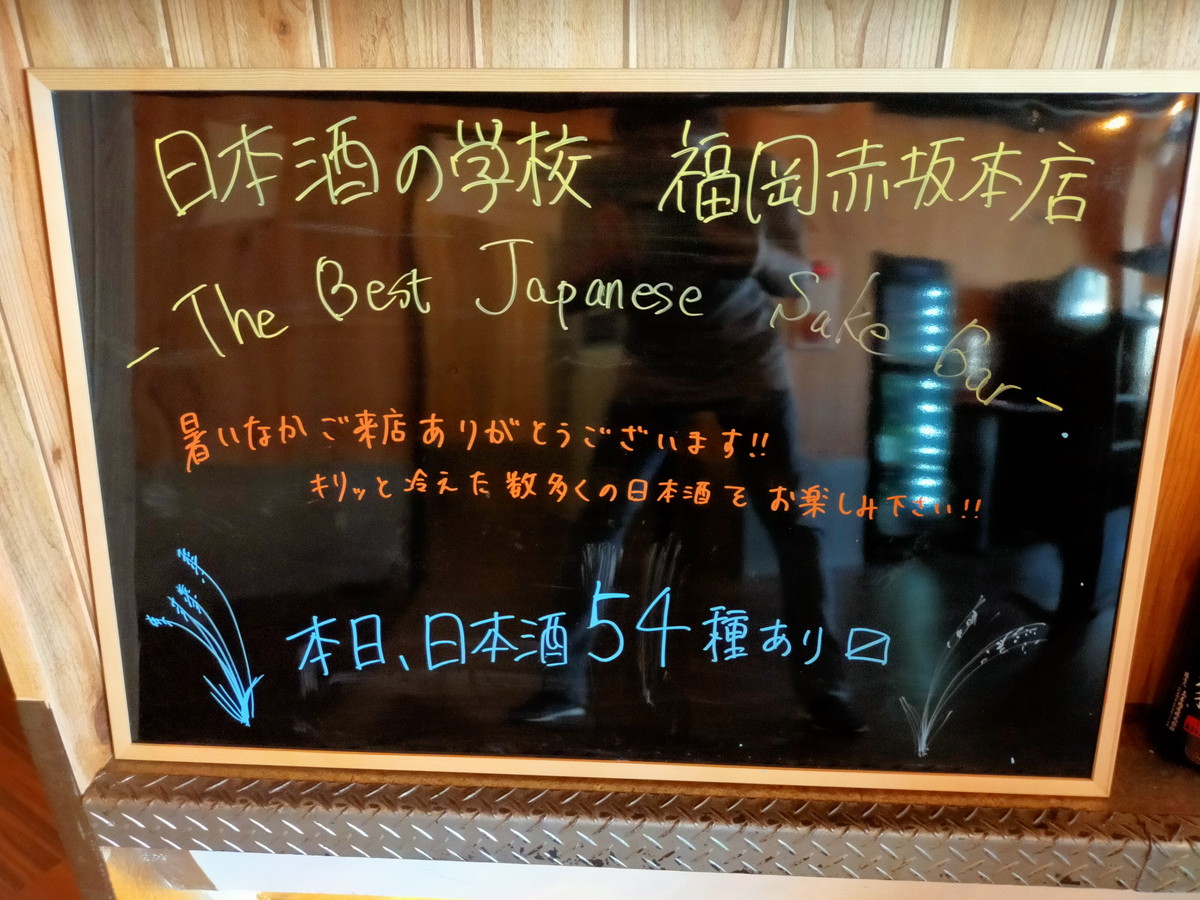 日本酒の学校 福岡赤坂本店
- The Best Japanese Sake Bar -
暑いなかご来店ありがとうございます!!
キリッと冷えた数多くの日本酒をお楽しみ下さい!!
本日、日本酒54種あり〼